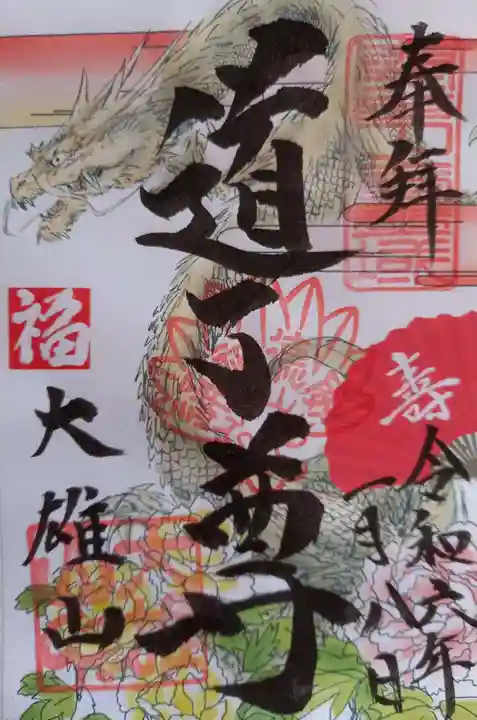 奉拜
寿
令和六年
一月八日
道了尊
福
大雄山